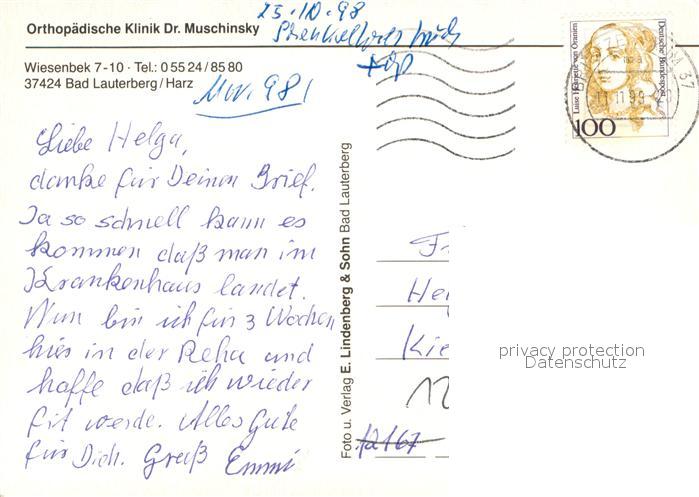 Orthopädische Klinik Dr. Muschinsky
Wiesenbek 7-10 · Tel.: 0 55 24 / 85 80
37424 Bad Lauterberg / Harz
25.10.98
Nov. 98
Liebe Helga,
danke für Deinen Brief.
Ja so schnell kann es
kommen daß man im
Krankenhaus landet.
Nun bin ich für 3 Wochen
hier in der Reha und
hoffe daß ich wieder
fit werde. Alles Gute
für Dich. Gruß Emmi
Foto u. Verlag E. Lindenberg & Sohn Bad Lauterberg
Luise Henriette von Oranien
Deutsche Bundespost
100
37
Fr
He
Kie
12
12167
privacy protection
Datenschutz